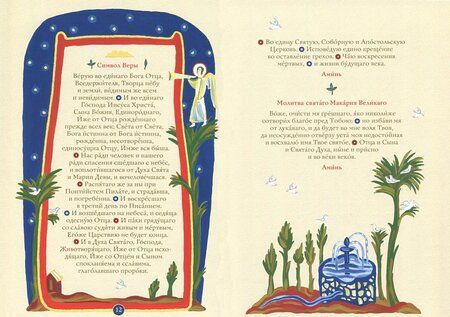 Символ Веры
Ве́рую во еди́наго Бога Отца,
Вседержи́теля, Творца́ не́бу
и земли́, ви́димым же всем
и неви́димым. И во еди́наго
Го́спода Иису́са Христа́,
Сы́на Бо́жия, Единоро́днаго,
Иже от Отца́ рожде́ннаго
пре́жде всех век; Све́та от Све́та,
Бо́га и́стинна от Бо́га и́стинна,
рожде́нна, несотворе́нна,
единосу́щна Отцу́, Имже вся бы́ша.
Нас ра́ди челове́к и на́шего
ра́ди спасе́ния сше́дшаго с небе́с,
и воплоти́вшагося от Ду́ха Свя́та
и Мари́и Де́вы, и вочелове́чшася.
Распя́таго же за ны при
Понти́йстем Пила́те, и страда́вша,
и погребе́нна. И воскре́сшаго
в тре́тий день по Писа́нием.
И возше́дшаго на небеса́, и седя́ща
одесну́ю Отца́. И па́ки гряду́щаго
со сла́вою суди́ти живы́м и ме́ртвым,
Его́же Ца́рствию не бу́дет конца́.
И в Ду́ха Свята́го, Го́спода,
Животворя́щаго, Иже от Отца́ исхо-
дя́щаго, Иже со Отце́м и Сы́ном
спокланя́ема и ссла́вима,
глаго́лавшаго проро́ки.
12
Во еди́ну Святу́ю, Собо́рную и Апо́стольскую
Це́рковь. Испове́дую еди́но креще́ние
во оставле́ние грехо́в. Ча́ю воскресе́ния
ме́ртвых, и жи́зни бу́дущаго ве́ка.
Ами́нь
Молитва свята́го Мака́рия Вели́каго
Бо́же, очи́сти мя гре́шнаго, я́ко николи́же
сотвори́х благо́е пред Тобо́ю; но изба́ви мя
от лука́ваго, и да бу́дет во мне во́ля Твоя́,
да неосужде́нно отве́рзу уста́ моя́ недосто́йная
и восхвалю́ и́мя Твое́ свято́е, Отца́ и Сы́на
и Свята́го Ду́ха, ны́не и при́сно
и во ве́ки веко́в.
Ами́нь